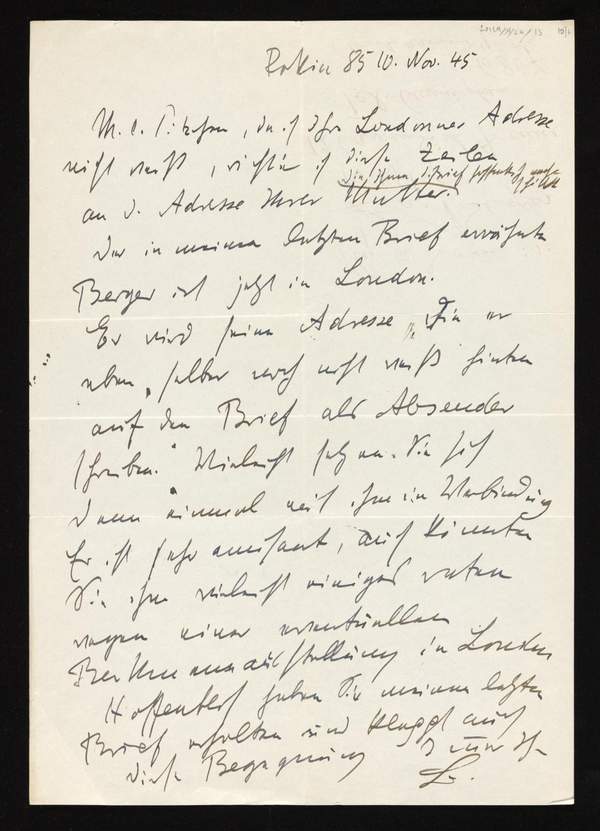 Rokin 85 10. Nov. 45
M. l. da ich Ihre Londoner Adresse
nicht weiß, richte ich diese Zeilen
die Ihnen diesen Brief hoffentlich nachschickt
an d. Adresse Ihrer Mutter.
Der in meinem letzten Brief erwähnte
Berger ist jetzt in London.
Er wird seine Adresse, die er
eben selber noch nicht weiß hinten
auf den Brief als Absender
schreiben. Vielleicht setzen Sie sich
dann einmal mit ihm in Verbindung
Er ist sehr amüsant, auch könnten
Sie ihm vielleicht einiges raten
wegen einer eventuellen
Beckmannausstellung in London
Hoffentlich haben Sie meinen letzten
Brief erhalten und klappt auch
diese Begegnung Immer Ihr